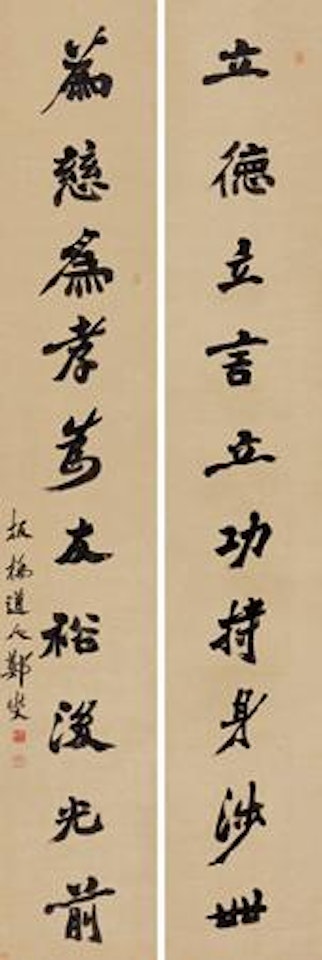 立德立言立功持身涉世
為慈為孝為友裕後光前
板橋道人鄭燮